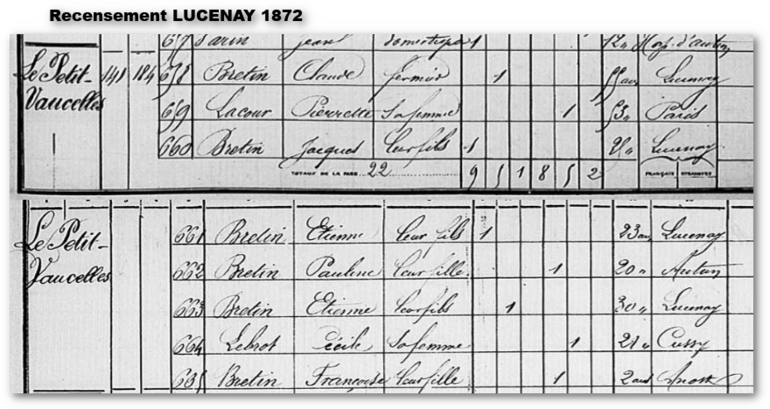 Recensement LUCENAY 1872
657 Jean domestique 1 12 "
Le Petit- 141 184 658 Bretin Claude fermier 1 55 ans Lucenay
Vaucelles 659 Lacour Pierrette sa femme 1 53 " Paris
660 Bretin Jacques leur fils 1 Lucenay
TOTAUX DE LA PAGE 22 9 5 1 8 5 2 FRANÇAIS ÉTRANGERS
Le Petit- 661 Bretin Etienne leur fils 1 23 ans Lucenay
Vaucelles 662 Bretin Pauline leur fille 1 20 " Autun
663 Bretin Etienne leur fils 1 30 " Lucenay
664 Lebrot Cécile sa femme 1 21 " Cussy
635 Bretin Françoise leur fille 1 2 ans Anost